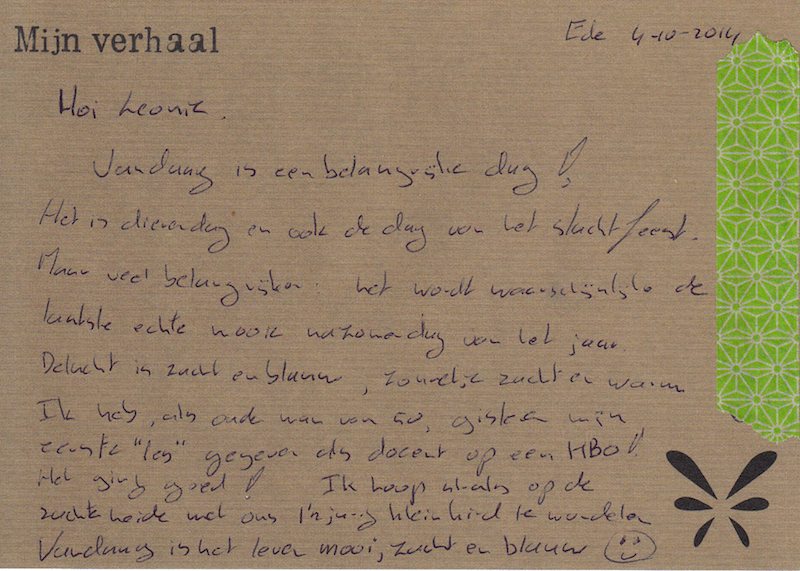 Mijn verhaal
Ede 4-10-2014
Hoi Leonie.
Vandaag is een belangrijke dag!
Het is dierendag en ook de dag van het slachtfeest.
Maar veel belangrijker: het wordt waarschijnlijk de
laatste echte mooie nazomerdag van het jaar.
De lucht is zacht en blauw, zonnetje zacht en warm
Ik heb, als oude man van 50, gisteren mijn
eerste "les" gegeven als docent op een HBO!
Het ging goed! Ik hoop straks op de
zachte heide met ons 1½ jarig kleinkind te wandelen
Vandaag is het leven mooi, zacht en blauw